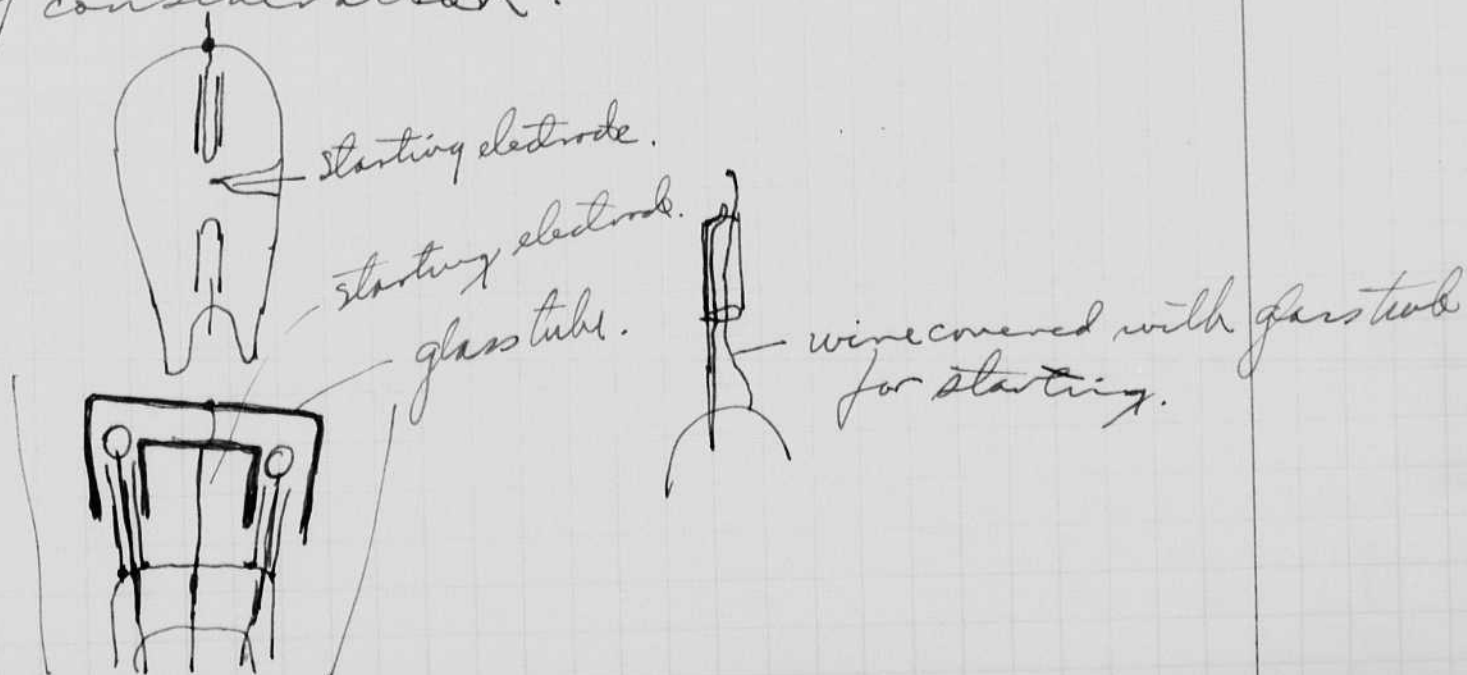 consideration.
starting electrode.
starting electrode.
glass tube.
wire covered with glass tube
for starting.